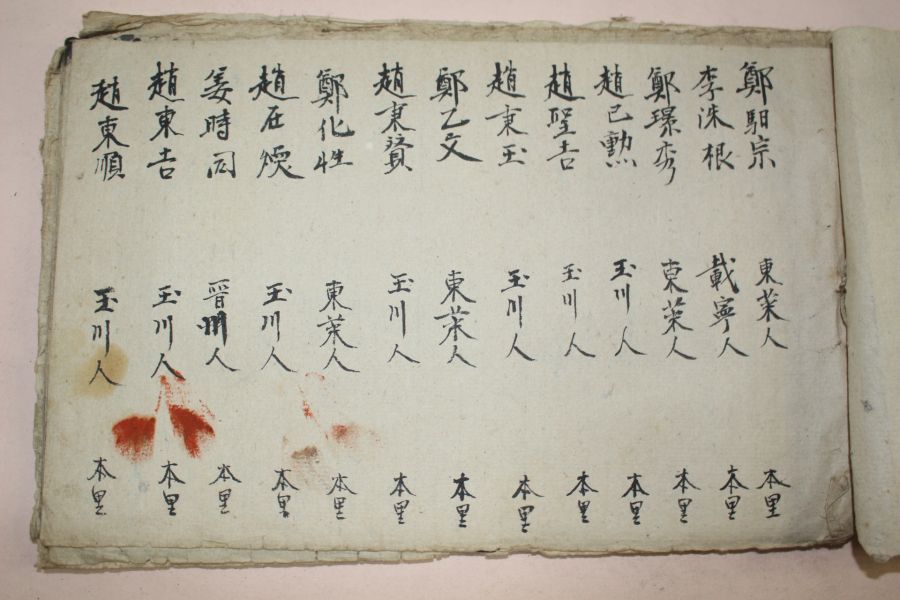 鄭馹宗 東萊人 本里
李洙根 載寧人 本里
鄭璟秀 東萊人 本里
趙已勲 玉川人 本里
趙聖吉 玉川人 本里
趙東玉 玉川人 本里
鄭乙文 東萊人 本里
趙東賢 玉川人 本里
鄭化性 東萊人 本里
趙在煥 玉川人 本里
姜時同 晋州人 本里
趙東吉 玉川人 本里
趙東順 玉川人 本里